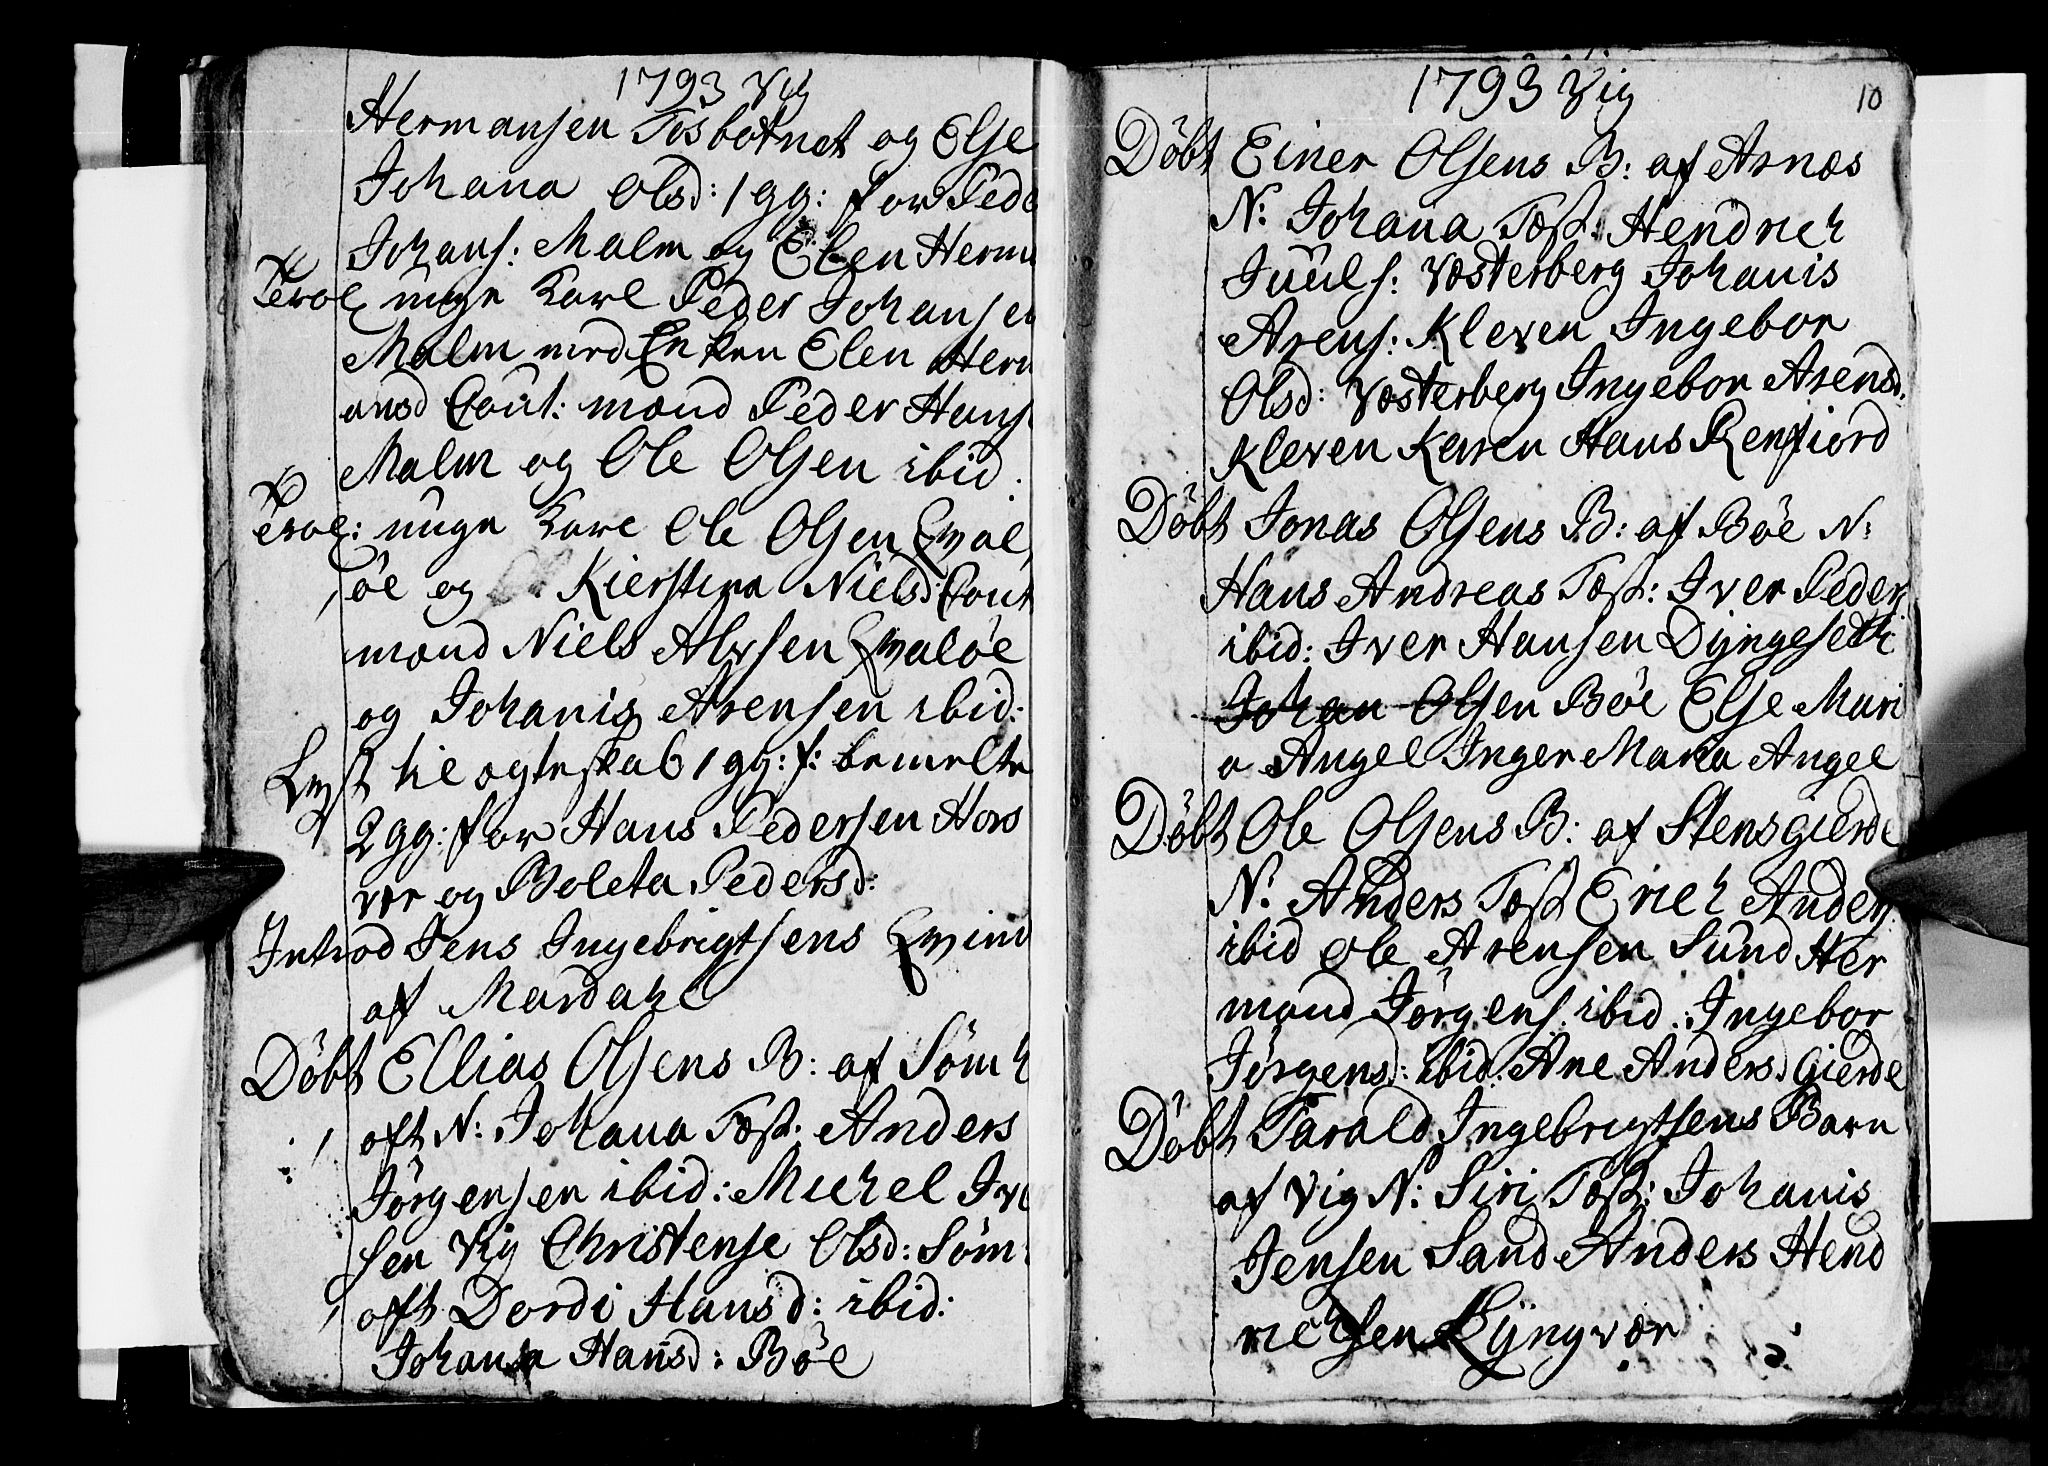 1793 Vig
Hermansen Tosbotnet og Else
Johana Olsd: 1 gg: for Pede
Johans: Malm og Elen Herm
Trol unge Karl Peder Johansen
Malm med Enken Elen Herm
ansd Caut: mænd Peder Hans
Malm og Ole Olsen ibid:
Trol: unge Karl Ole Olsen Qval
øe og Kierstina Nielsd: Caut
mænd Niels Alvsen Qvaløe
og Johanis Arensen ibid:
Lyst til ægteskab 1 gg: f: bemelte
2 gg: for Hans Pedersen Hors
vær og Boleta Pedersd:
Introd Jens Ingebrigtsens Qvind
af Mardahl
Döbt Ellias Olsens B: af Söm h
oft N: Johana Test: Anders
Jörgensen ibid: Michel Ive
sen Vig Christense Olsd: Söm
oft Dordi Hansd: ibid:
Johana Hansd: Böe
1793 Vig
10
Döbt Einer Olsens B: af Arnæs
N: Johana Test: Hendrich
Juuls: Vesterberg Johanis
Arens: Kleven Ingebor
Olsd: Vesterberg Ingebor Arensd:
Kleven Karen Hans Renfiord
Döbt Jonas Olsens B: af Böe N:
Hans Andreas Test: Iver Peder
ibid: Iver Hansen Dyngeseth
Johan Olsen Böe Else Mari
a Angel Inger Maria Angel
Döbt Ole Olsens B: af Stensgierde
N: Anders Test Erich Anders
ibid Ole Arensen Sund Her
mand Jörgens. ibid: Ingebor
Jörgensd: ibid: Ane Andersd Gierde
Döbt Tarald Ingebrigtsens Barn
af Vig N: Siri Test: Johanis
Jensen Sand Anders Hend
richsen Lyngvær